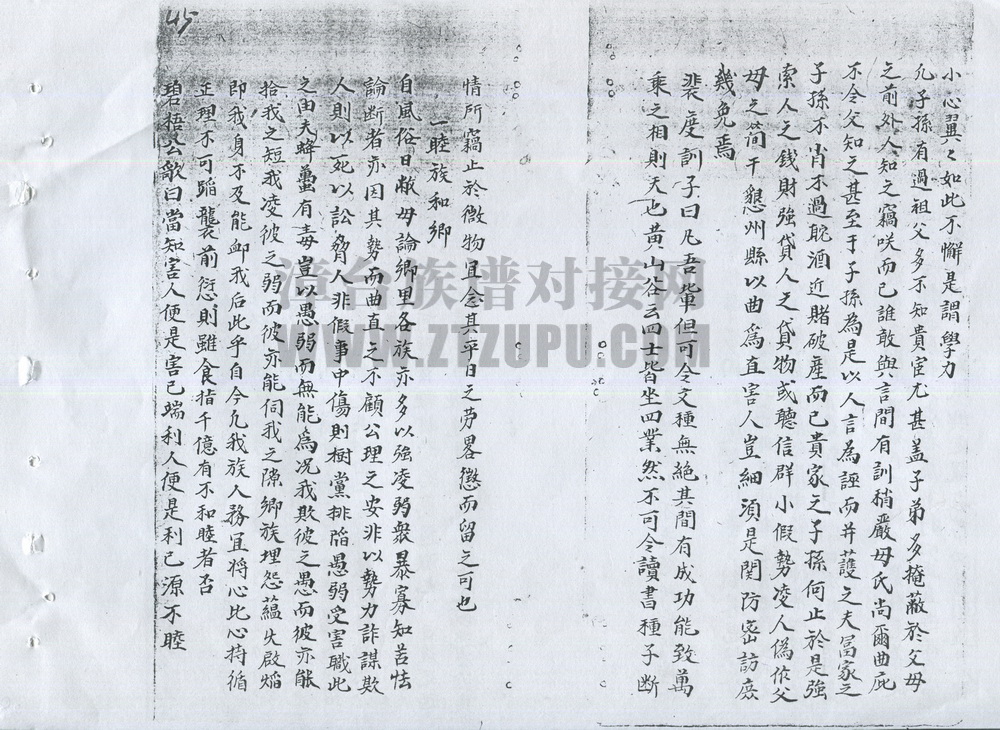 小心翼々如此不懈是謂學力
凢子孫有過祖父多不知貴宦尤甚盖子弟多掩蔽於父母
之前外人知之竊咲而已誰敢與言間有訓稍嚴母氏尚爾曲庇
不令父知之甚至于子孫為是以人言為誣而并護之夫冨家之
子孫不肖不過耽酒近賭破產而已貴家之子孫何止於是強
索人之錢財強貸人之貨物或聽信群小假勢凌人偽作父
母之簡干懇州縣以曲爲直害人豈細須是関防密訪庶
幾免焉
裴度訓子曰凡吾軰但可令文種無絶其間有成功能致萬
乘之相則天也黄山谷云四士皆坐四業然不可令讀書種子断
情所竊止於微物且念其平日之劳畧懲而留之可也
一睦族和鄉
自風俗日敝毋論鄉里各族亦多以強凌弱衆暴寡知苦怯
論断者亦因其勢而曲直之不顧公理之安非以勢力詐謀欺
人則以死以訟脅人非假事中傷則樹黨排陷愚弱受害職此
之由夫蜂蠆有毒豈以愚弱而無能為况我欺彼之愚而彼亦能
拾我之短我凌彼之弱而彼亦能伺我之隙鄉族埋怨蕴失啟熖
即我身不及能卹我后此乎自今凢我族人務宜将心比心持循
正理不可蹈襲前愆則雖食指千億有不和睦者否
碧梧公歌曰當知害人便是害已端利人便是利已源不睦
45
漳台族谱对接网
WWW.ZTZUPU.COM